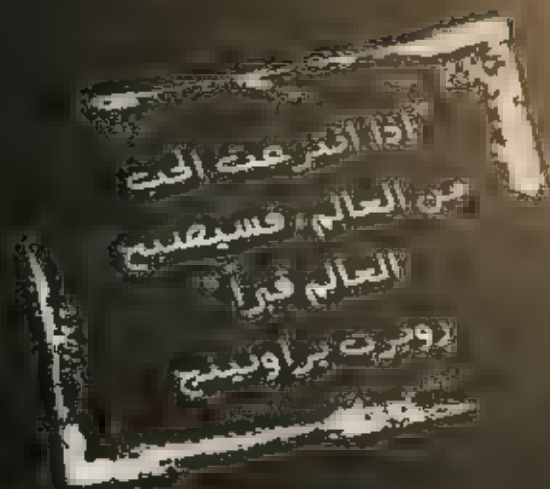 اذا انتزعت الحب
من العالم، فسيصبح
العالم قبراً
روبرت براونينج